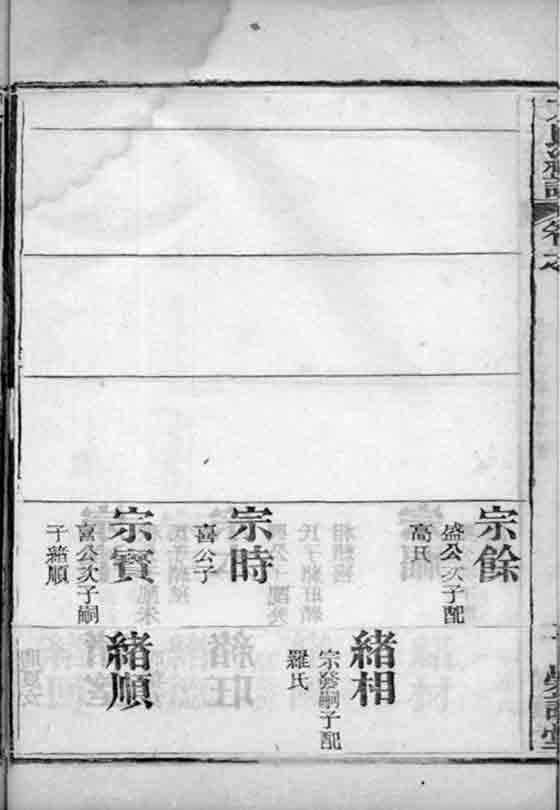 宗餘
盛公次子配
高氏
宗時
喜公子
宗寶
喜公次子嗣
子緒順
緒相
宗發嗣子配
羅氏
緒順